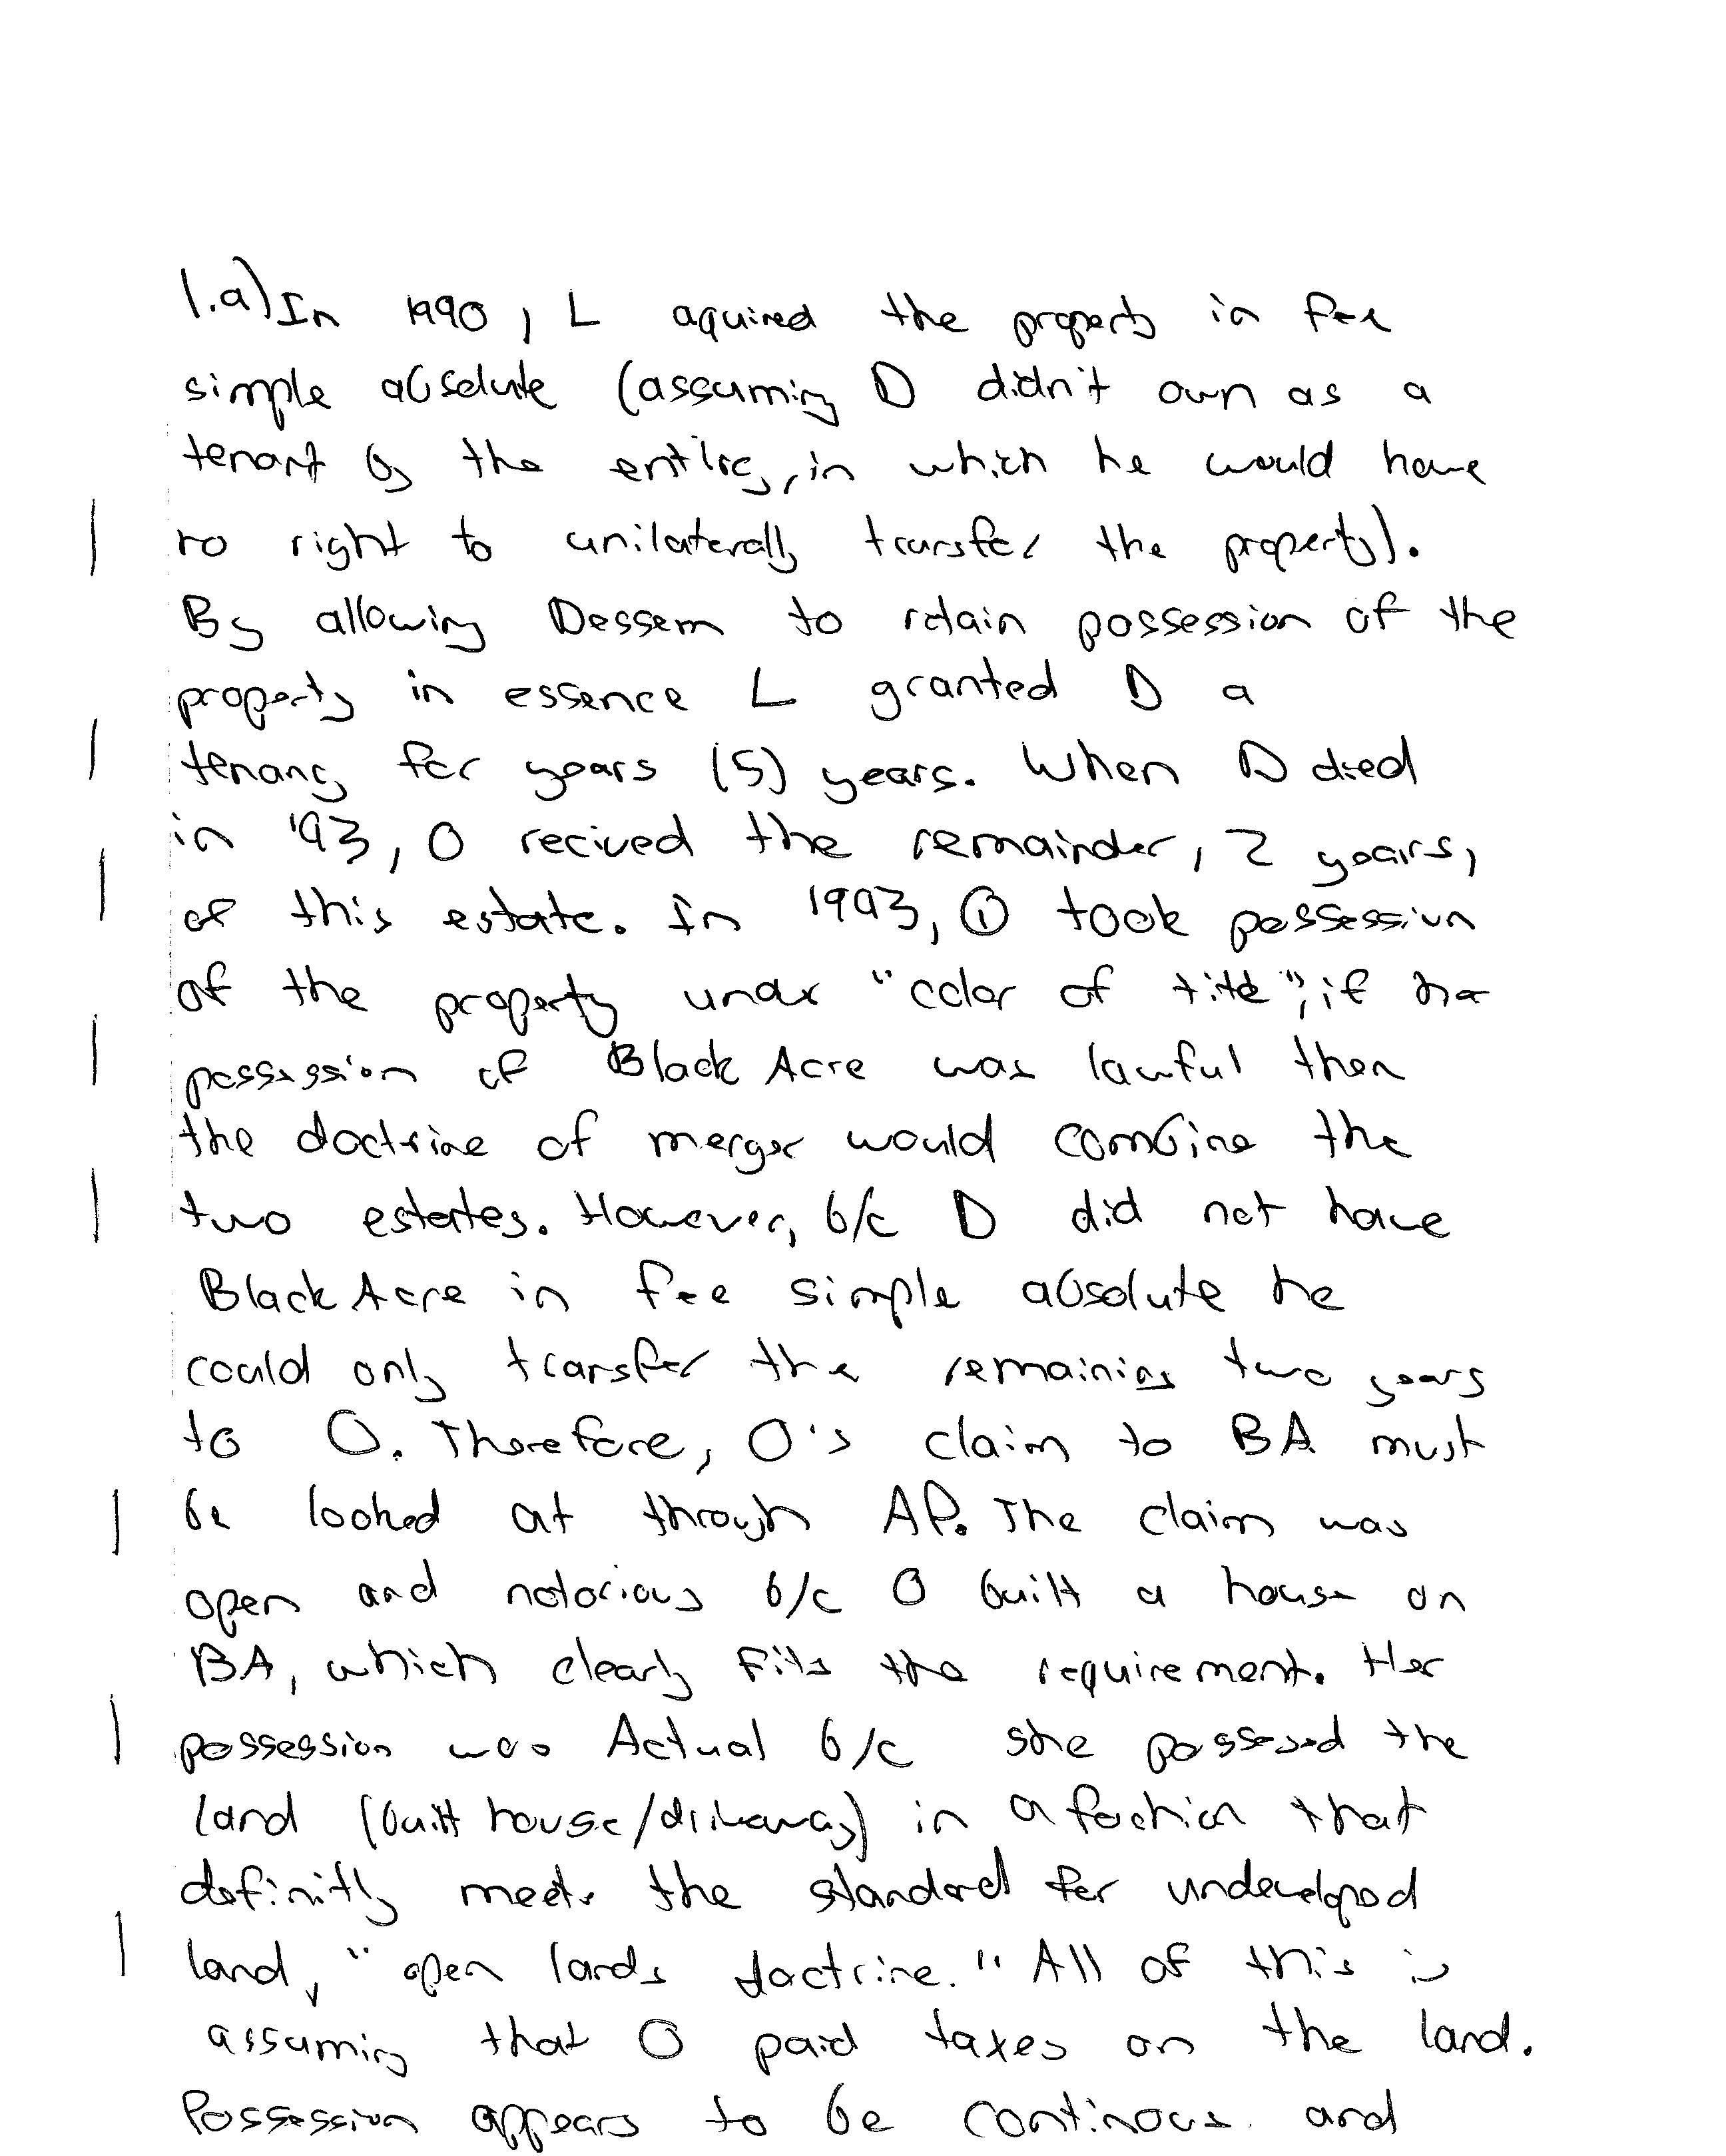 1.a) In 1990, L aquired the property in fee
simple absolute (assuming D didn't own as a
tenant by the entirey, in which he would have
no right to unilaterally transfer the property).
By allowing Dessem to retain possession of the
property in essence L granted D a
tenancy for years (5) years. When D died
in '93, O recived the remainder, 2 years,
of this estate. In 1993, O took possession
of the property under "color of title", if her
possession of Black Acre was lawful then
the doctrine of merger would combine the
two estates. However, b/c D did not have
Black Acre in fee simple absolute he
could only transfer the remaining two years
to O. Therefore, O's claim to BA must
be looked at through AP. The claim was
open and notorious b/c O built a house on
BA, which clearly fits the requirement. Her
possession was Actual b/c she possessed the
land (built house/driveway) in a fashion that
definitly meets the standard for undeveloped
land, "open lands doctrine." All of this is
assuming that O paid taxes on the land.
Possession appears to be continous and